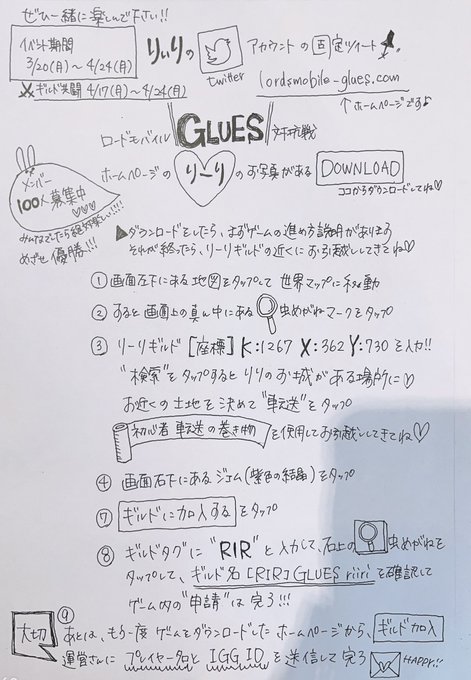 ぜひ一緒に楽しんで下さい!!
イベント期間
3/20(月)～4/24(月)
ギルド共闘 4/17(月)～4/24(月)
りぃりの twitter アカウントの固定ツイート
lordsmobile-glues.com
↑ホームページです♪
ロードモバイル GLUES 対抗戦
メンバー
100人募集中♡♡♡
めざせ優勝!!!
ホームページの り～り のお写真がある DOWNLOAD
ココからダウンロードしてね♡
▲ダウンロードをしたら、まずゲームの進め方説明があります
それが終ったら、リーリギルドの近くにお引越ししてきてね♡
① 画面左下にある地図をタップして世界マップに移動
② すると画面上の真ん中にある 虫めがねマークをタップ
③ リーリギルド [座標] K:1267 X:362 Y:730 を入力!!
"検索"をタップするとりりのお城がある場所に♡
お近くの土地を決めて"転送"をタップ
初心者転送の巻き物 を使用してお引越ししてきてね♡
④ 画面右下にあるジェム(紫色の結晶)をタップ
⑦ ギルドに加入する をタップ
⑧ ギルドタグに"RIR"と入力して、右上の 虫めがねを
タップして、ギルド名[RIR]GLUES riiri を確認して
ゲーム内の"申請"は完了!!!
大切
⑨ あとは、もう一度ゲームをダウンロードしたホームページから、ギルド加入
運営さんにプレイヤー名とIGG IDを送信して完了 HAPPY!!